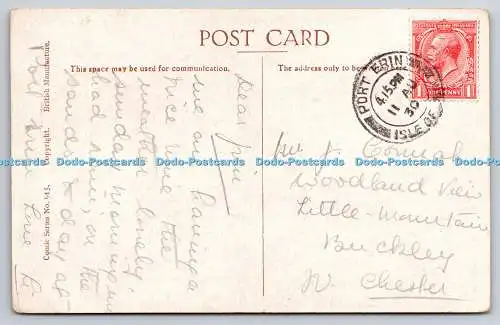 POST CARD
This space may be used for communication.
The address only to be
British Manufacture.
Copyright.
Comic Series No. 615.
PORT ERIN
4.15 PM
11 AU
30
ISLE OF
ONE PENNY
Dear Jim
we are having a
nice time the
weather lovely
Sunday morning we
had rain, on the
Sands to day
Love
Port Erin
Mr J.
Woodland View
Little-Mountain
Buckley
Nr Chester
Dodo-Postcards Dodo-Postcards Dodo-Postcards Dodo-Postcards Dodo-Postcards